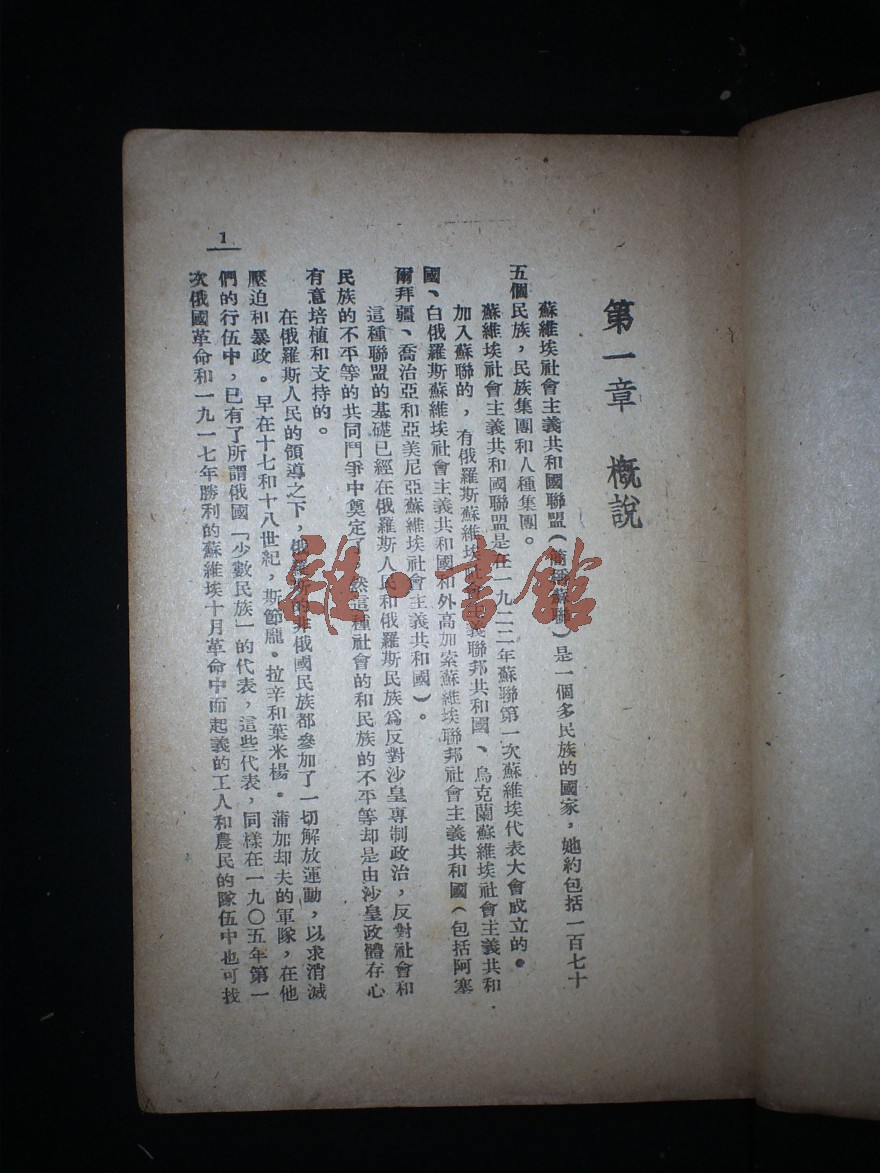 第一章 概說
蘇維埃社會主義共和國聯盟(簡稱蘇聯)是一個多民族的國家，她約包括一百七十
五個民族，民族集團和人種集團。
蘇維埃社會主義共和國聯盟是在一九二二年蘇聯第一次蘇維埃代表大會成立的。
加入蘇聯的，有俄羅斯蘇維埃社會主義聯邦共和國、烏克蘭蘇維埃社會主義共和
國、白俄羅斯蘇維埃社會主義共和國和外高加索蘇維埃聯邦社會主義共和國(包括阿塞
爾拜疆、喬治亞和亞美尼亞蘇維埃社會主義共和國)。
這種聯盟的基礎已經在俄羅斯人民和俄羅斯民族為反對沙皇專制政治，反對社會和
民族的不平等的共同鬥爭中奠定了 然這種社會的和民族的不平等却是由沙皇政體存心
有意培植和支持的。
在俄羅斯人民的領導之下，俄羅斯的非俄國民族都參加了一切解放運動，以求消滅
壓迫和暴政。早在十七和十八世紀，斯節龐·拉辛和葉米楊·蒲加却夫的軍隊，在他
們的行伍中，已有了所謂俄國「少數民族」的代表，這些代表，同樣在一九〇五年第一
次俄國革命和一九一七年勝利的蘇維埃十月革命中而起義的工人和農民的隊伍中也可找
1
雜·書館